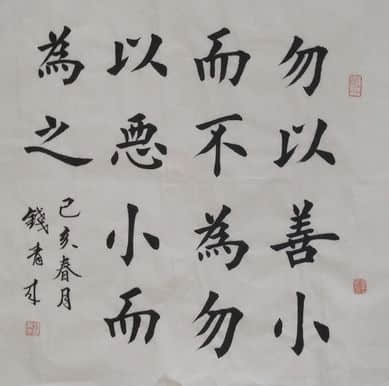 勿以善小
而不為勿
以惡小而
為之
己亥春月
錢青年